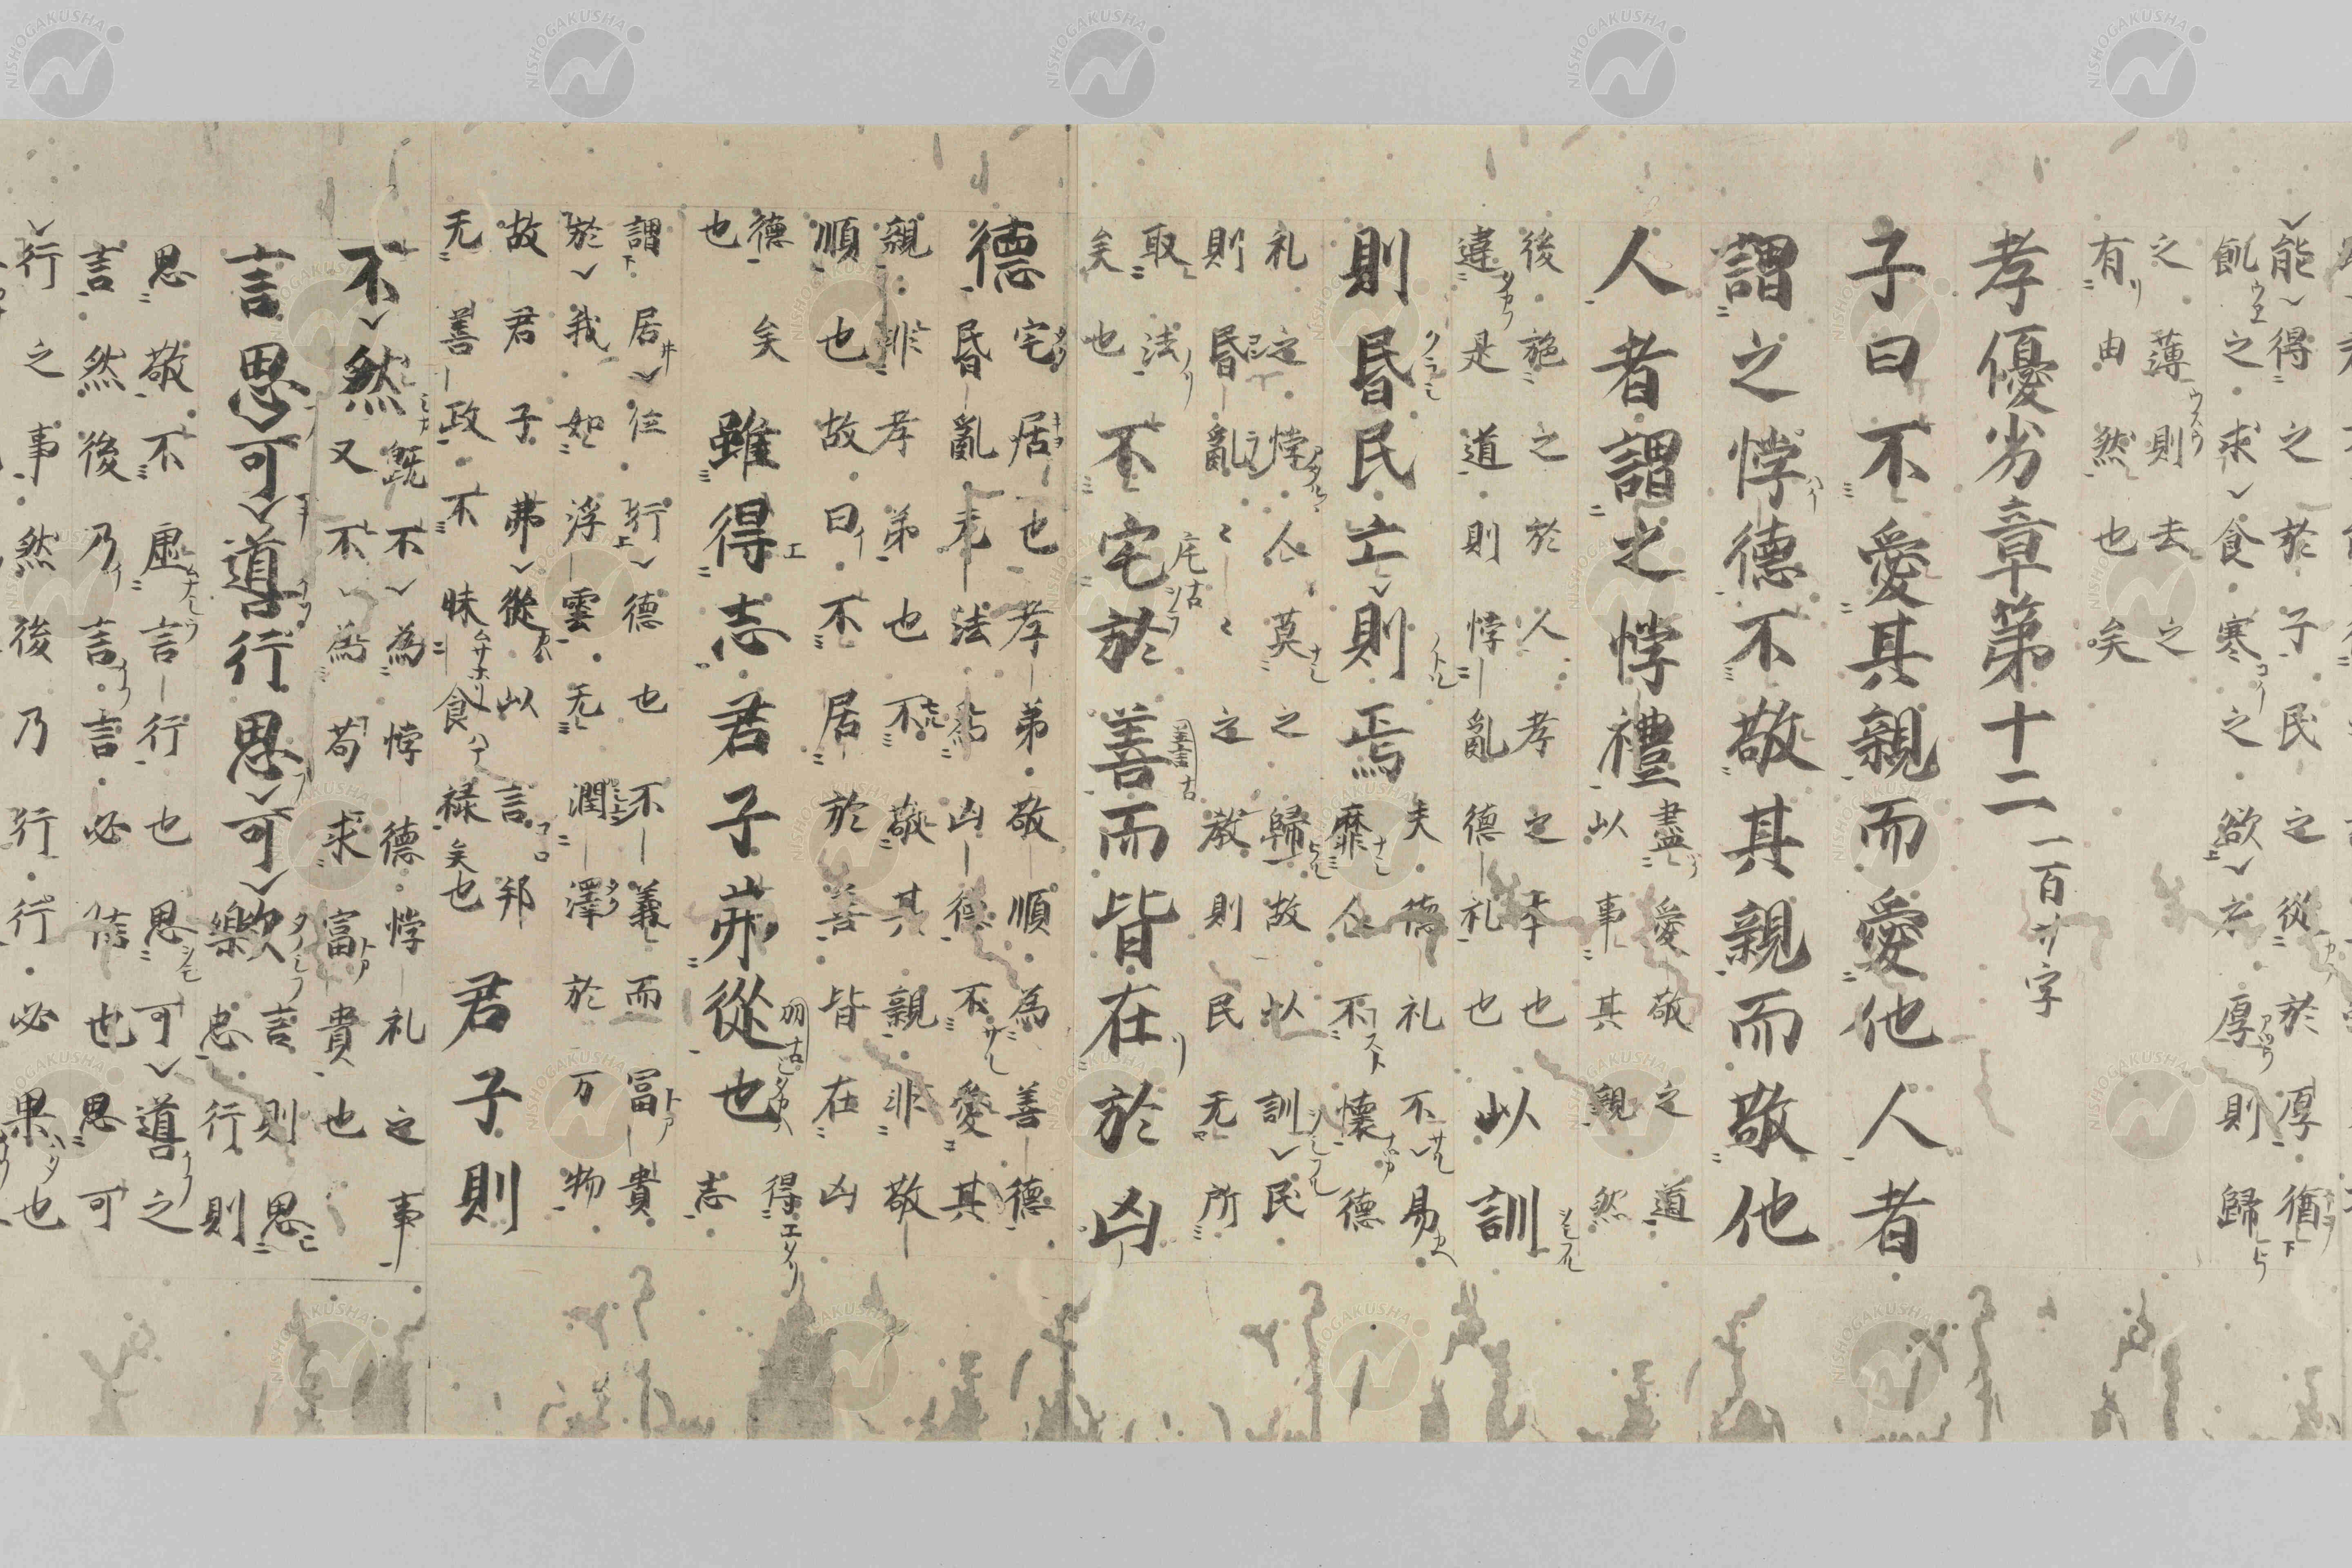 能得之於子民之從於厚猶
飢之求食寒之欲衣厚則歸
之薄則去之
有由然也矣
孝優劣章第十二一百廿字
子曰不愛其親而愛他人者
謂之悖德不敬其親而敬他
人者謂之悖禮
盡愛敬之道
以事其親然
後施之於人孝之本也
違是道則悖亂德礼也
以訓
則昬民亡則焉
夫德礼不易
靡人不懷德
礼之悖人莫之歸故以訓民
則昬亂〻〻之教則民无所
取法
矣也
不宅於善而皆在於凶
德
宅居也孝弟敬順為善德
昬亂无法為凶德不愛其
親非孝弟也不敬其親非敬
順也故曰不居於善皆在凶
德矣
也
雖得志君子弗從也
得
志
謂居位行德也不義而冨貴
於我如浮雲无潤澤於万物
故君子弗從以言邦
无善政不昧食禄矣也
君子則
不然
既不為悖德悖礼之事
又不為苟求富貴也
言思可道行思可樂
言則思
忠行則
思敬不虛言行也思可道之
言然後乃言言必信也思可
行之事然後乃行行必果也